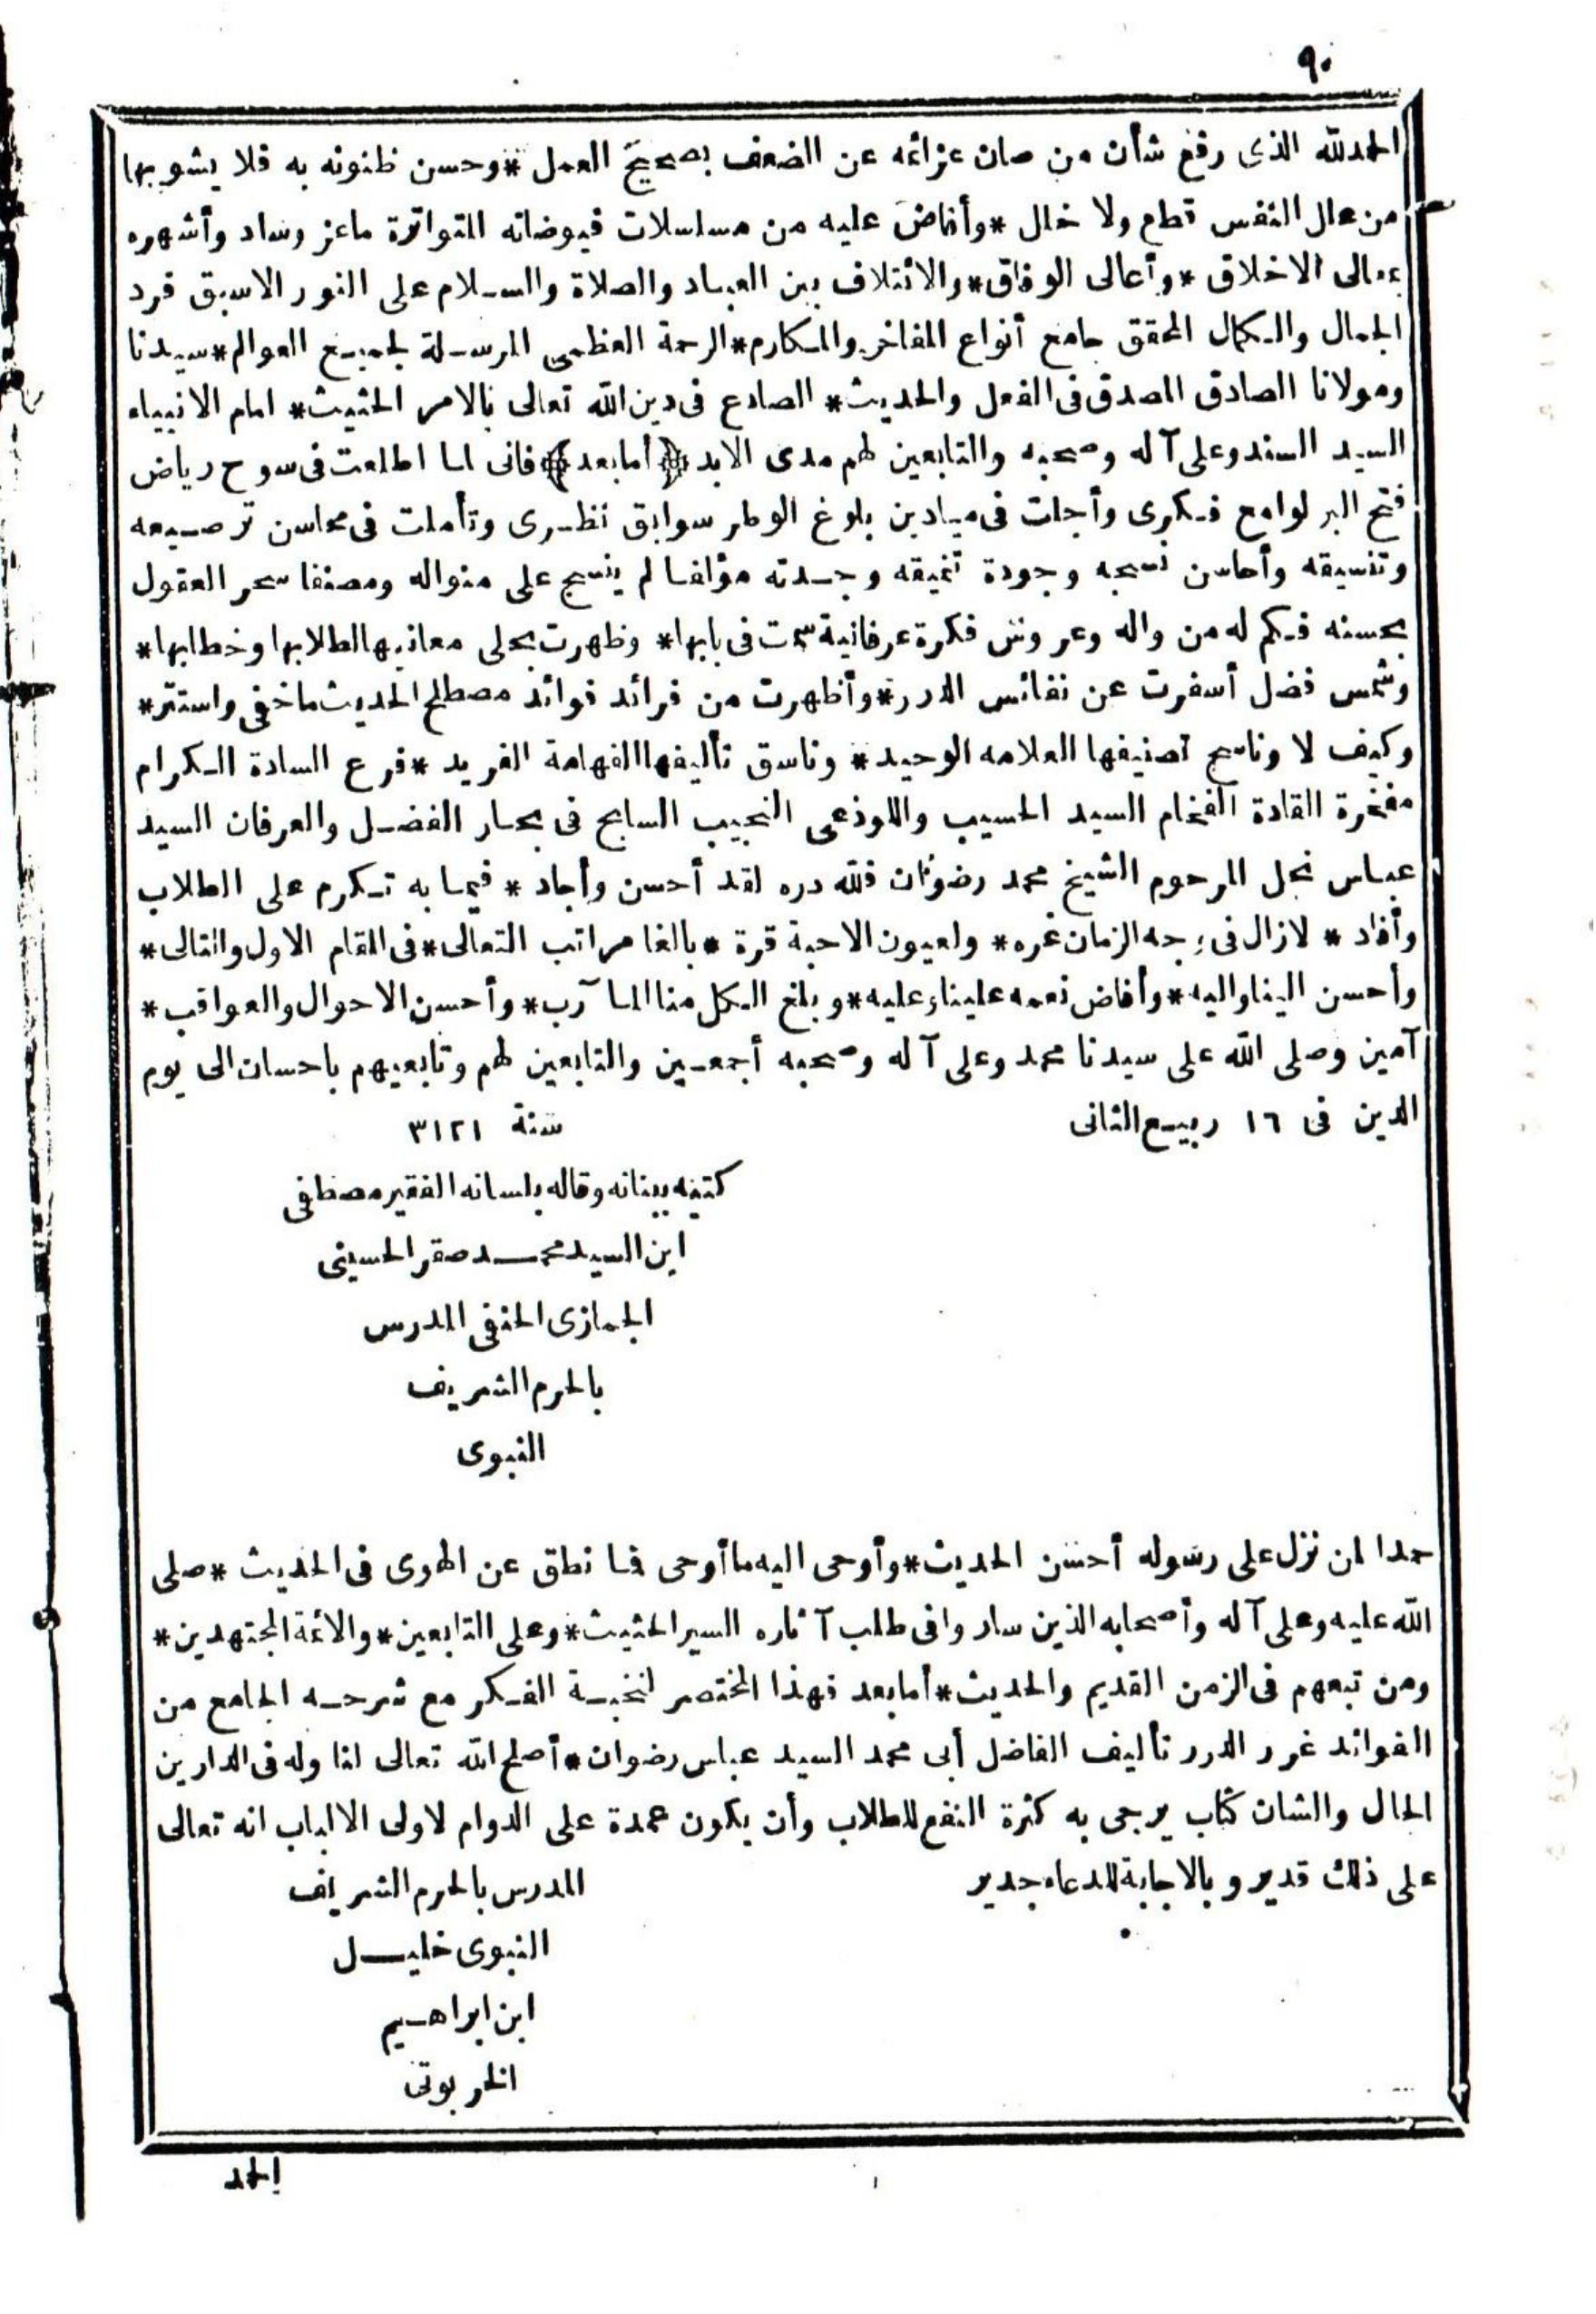 ٩٠
الحمدلله الذى رفع شأن من صان عزائمه عن الضعف بصحيح العمل *وحسن ظنونه به فلا يشوبها
من علل النفس قطع ولا خلل *وأفاض عليه من مسلسلات فيوضاته المتواترة ماعز وساد وأشهره
بمعالى الاخلاق *وأعالى الوفاق*والائتلاف بين العباد والصلاة والسلام على النور الاسبق فرد
الجمال والكمال المحقق جامع أنواع المفاخر والمكارم*الرحمة العظمى المرسلة لجميع العوالم*سيدنا
ومولانا الصادق المصدق فى الفعل والحديث* الصادع فى دين الله تعالى بالامر الحثيث* امام الانبياء
السيد السند وعلى آله وصحبه والتابعين لهم مدى الابد ﴿أما بعد﴾ فانى لما اطلعت فى سوح رياض
فتح البر لوامع فكرى وأجلت فى ميادين بلوغ الوطر سوابق نظرى وتأملت فى محاسن ترصيعه
وتنسيقه وأحاسن نسجه وجودة تنميقه وجدته مؤلفا لم ينسج على منواله ومصنفا سحر العقول
بحسنه فكم له من واله وعروس فكرة عرفانية سمت فى بابها* وظهرت بحلى معانيها لطلابها وخطابها*
وشمس فضل أسفرت عن نفائس الدرر*وأظهرت من فرائد فوائد مصطلح الحديث ماخفى واستتر*
وكيف لا وناسج تصنيفها العلامه الوحيد* وناسق تأليفها الفهامة الفريد *فرع السادة الكرام
مفخرة القادة الفخام السيد الحسيب واللوذعى النجيب السابح فى بحار الفضل والعرفان السيد
عباس نجل المرحوم الشيخ محمد رضوان فلله دره لقد أحسن وأجاد * فيما به تكرم على الطلاب
وأفاد * لازال فى وجه الزمان غره* ولعيون الاحبة قرة *بالغا مراتب التعالى*فى المقام الاول والتالى*
وأحسن الينا واليه*وأفاض نعمه علينا وعليه*وبلغ الكل منا المآرب*وأحسن الاحوال والعواقب*
آمين وصلى الله على سيدنا محمد وعلى آله وصحبه أجمعين والتابعين لهم وتابعيهم باحسان الى يوم
الدين فى ١٦ ربيع الثانى سنة ٣١٢١
كتبه ببنانه وقاله بلسانه الفقير مصطفى
ابن السيد محمد صقر الحسينى
الجمازى الحنفى المدرس
بالحرم الشريف
النبوى
حمدا لمن نزل على رسوله أحسن الحديث*وأوحى اليه ما أوحى فما نطق عن الهوى فى الحديث *صلى
الله عليه وعلى آله وأصحابه الذين ساروا فى طلب آثاره السير الحثيث*وعلى التابعين*والائمة المجتهدين*
ومن تبعهم فى الزمن القديم والحديث*أما بعد فهذا المختصر لنخبة الفكر مع شرحه الجامع من
الفوائد غرر الدرر تأليف الفاضل أبى محمد السيد عباس رضوان*أصلح الله تعالى لنا وله فى الدارين
الحال والشان كتاب يرجى به كثرة النفع للطلاب وأن يكون عمدة على الدوام لاولى الالباب انه تعالى
على ذلك قدير وبالاجابة للدعاء جدير المدرس بالحرم الشريف
النبوى خليل
ابن ابراهيم
الخربوتى
الحمد